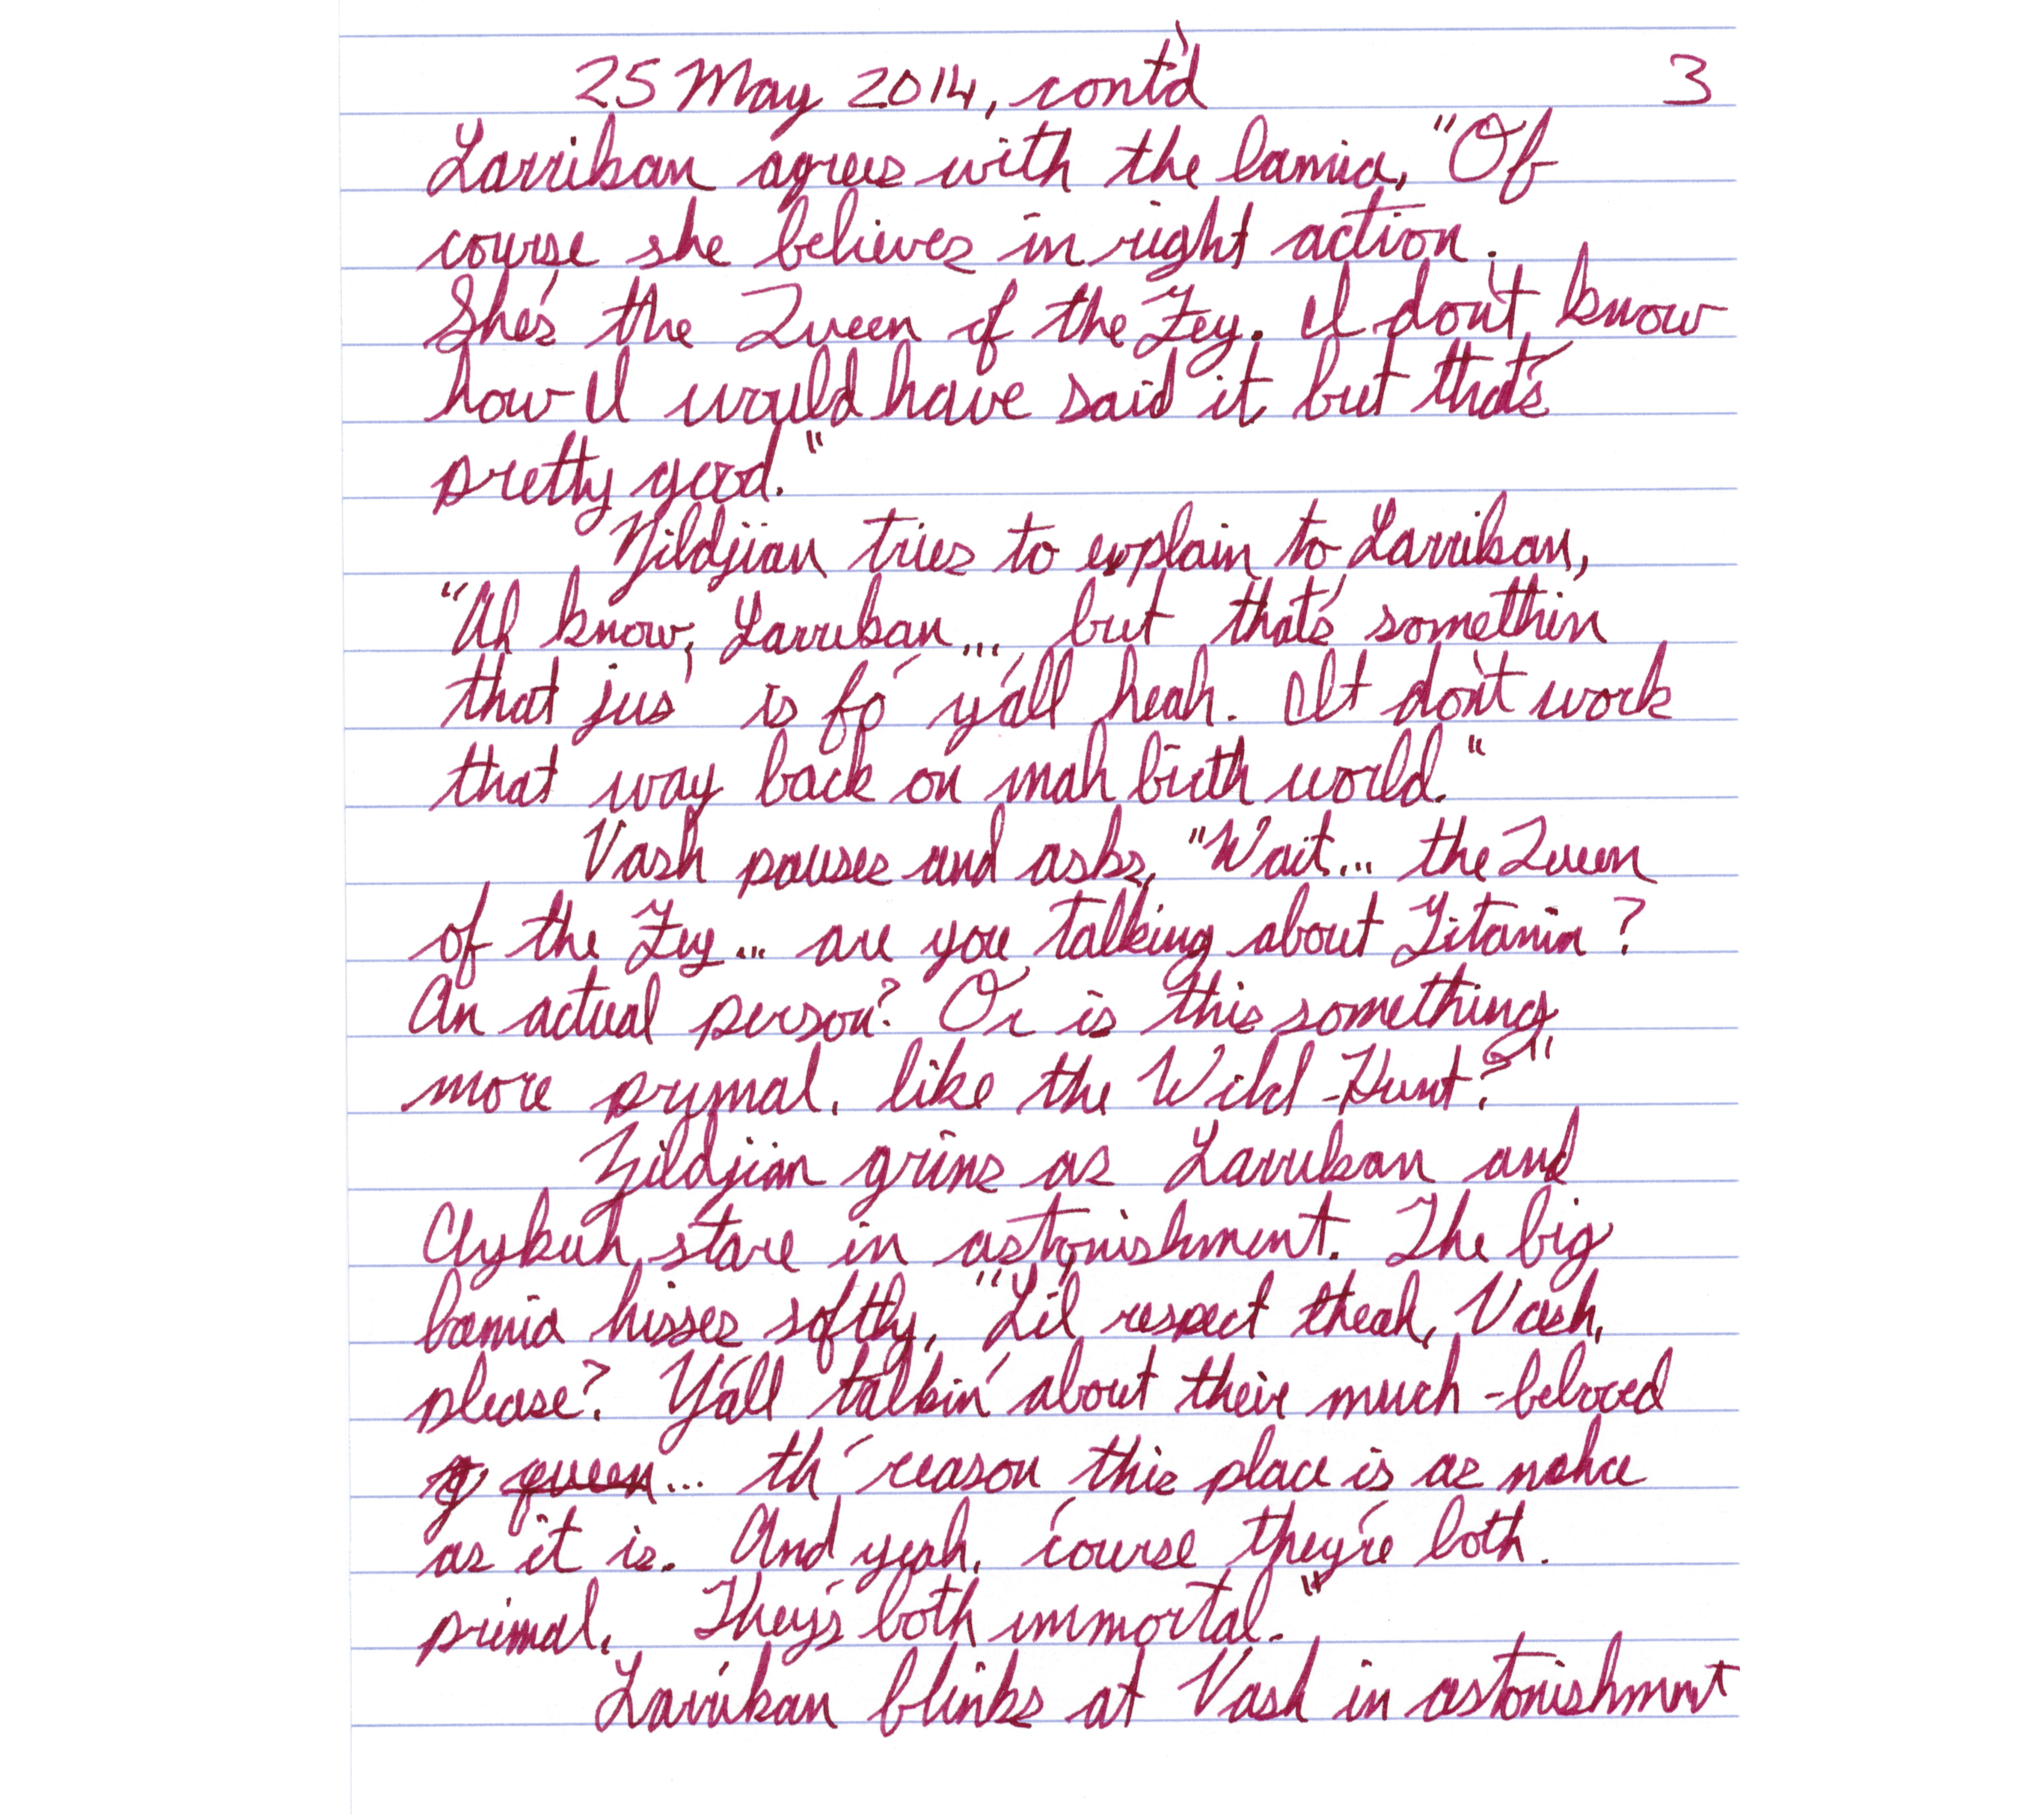 25 May 2014, cont'd 3
Larrikan agrees with the lamia, "Of
course she believes in right action.
She's the Queen of the Fey. I don't know
how I would have said it, but that's
pretty good."
Zildjian tries to explain to Larrikan,
"Ah know, Larrikan... but that's somethin
that jus' is fo' y'all heah. It don't work
that way back on mah birth world."
Vash pauses and asks, "Wait... the Queen
of the Fey... are you talking about Titania?
An actual person? Or is this something
more primal, like the Wild Hunt?"
Zildjian grins as Larrikan and
Aykuh stare in astonishment. The big
lamia hisses softly, "Li'l respect theah, Vash,
please? Y'all talkin' about their much-beloved
queen... th' reason this place is as nahce
as it is. And yeah, 'course they're both
primal. They's both immortal."
Larrikan blinks at Vash in astonishment